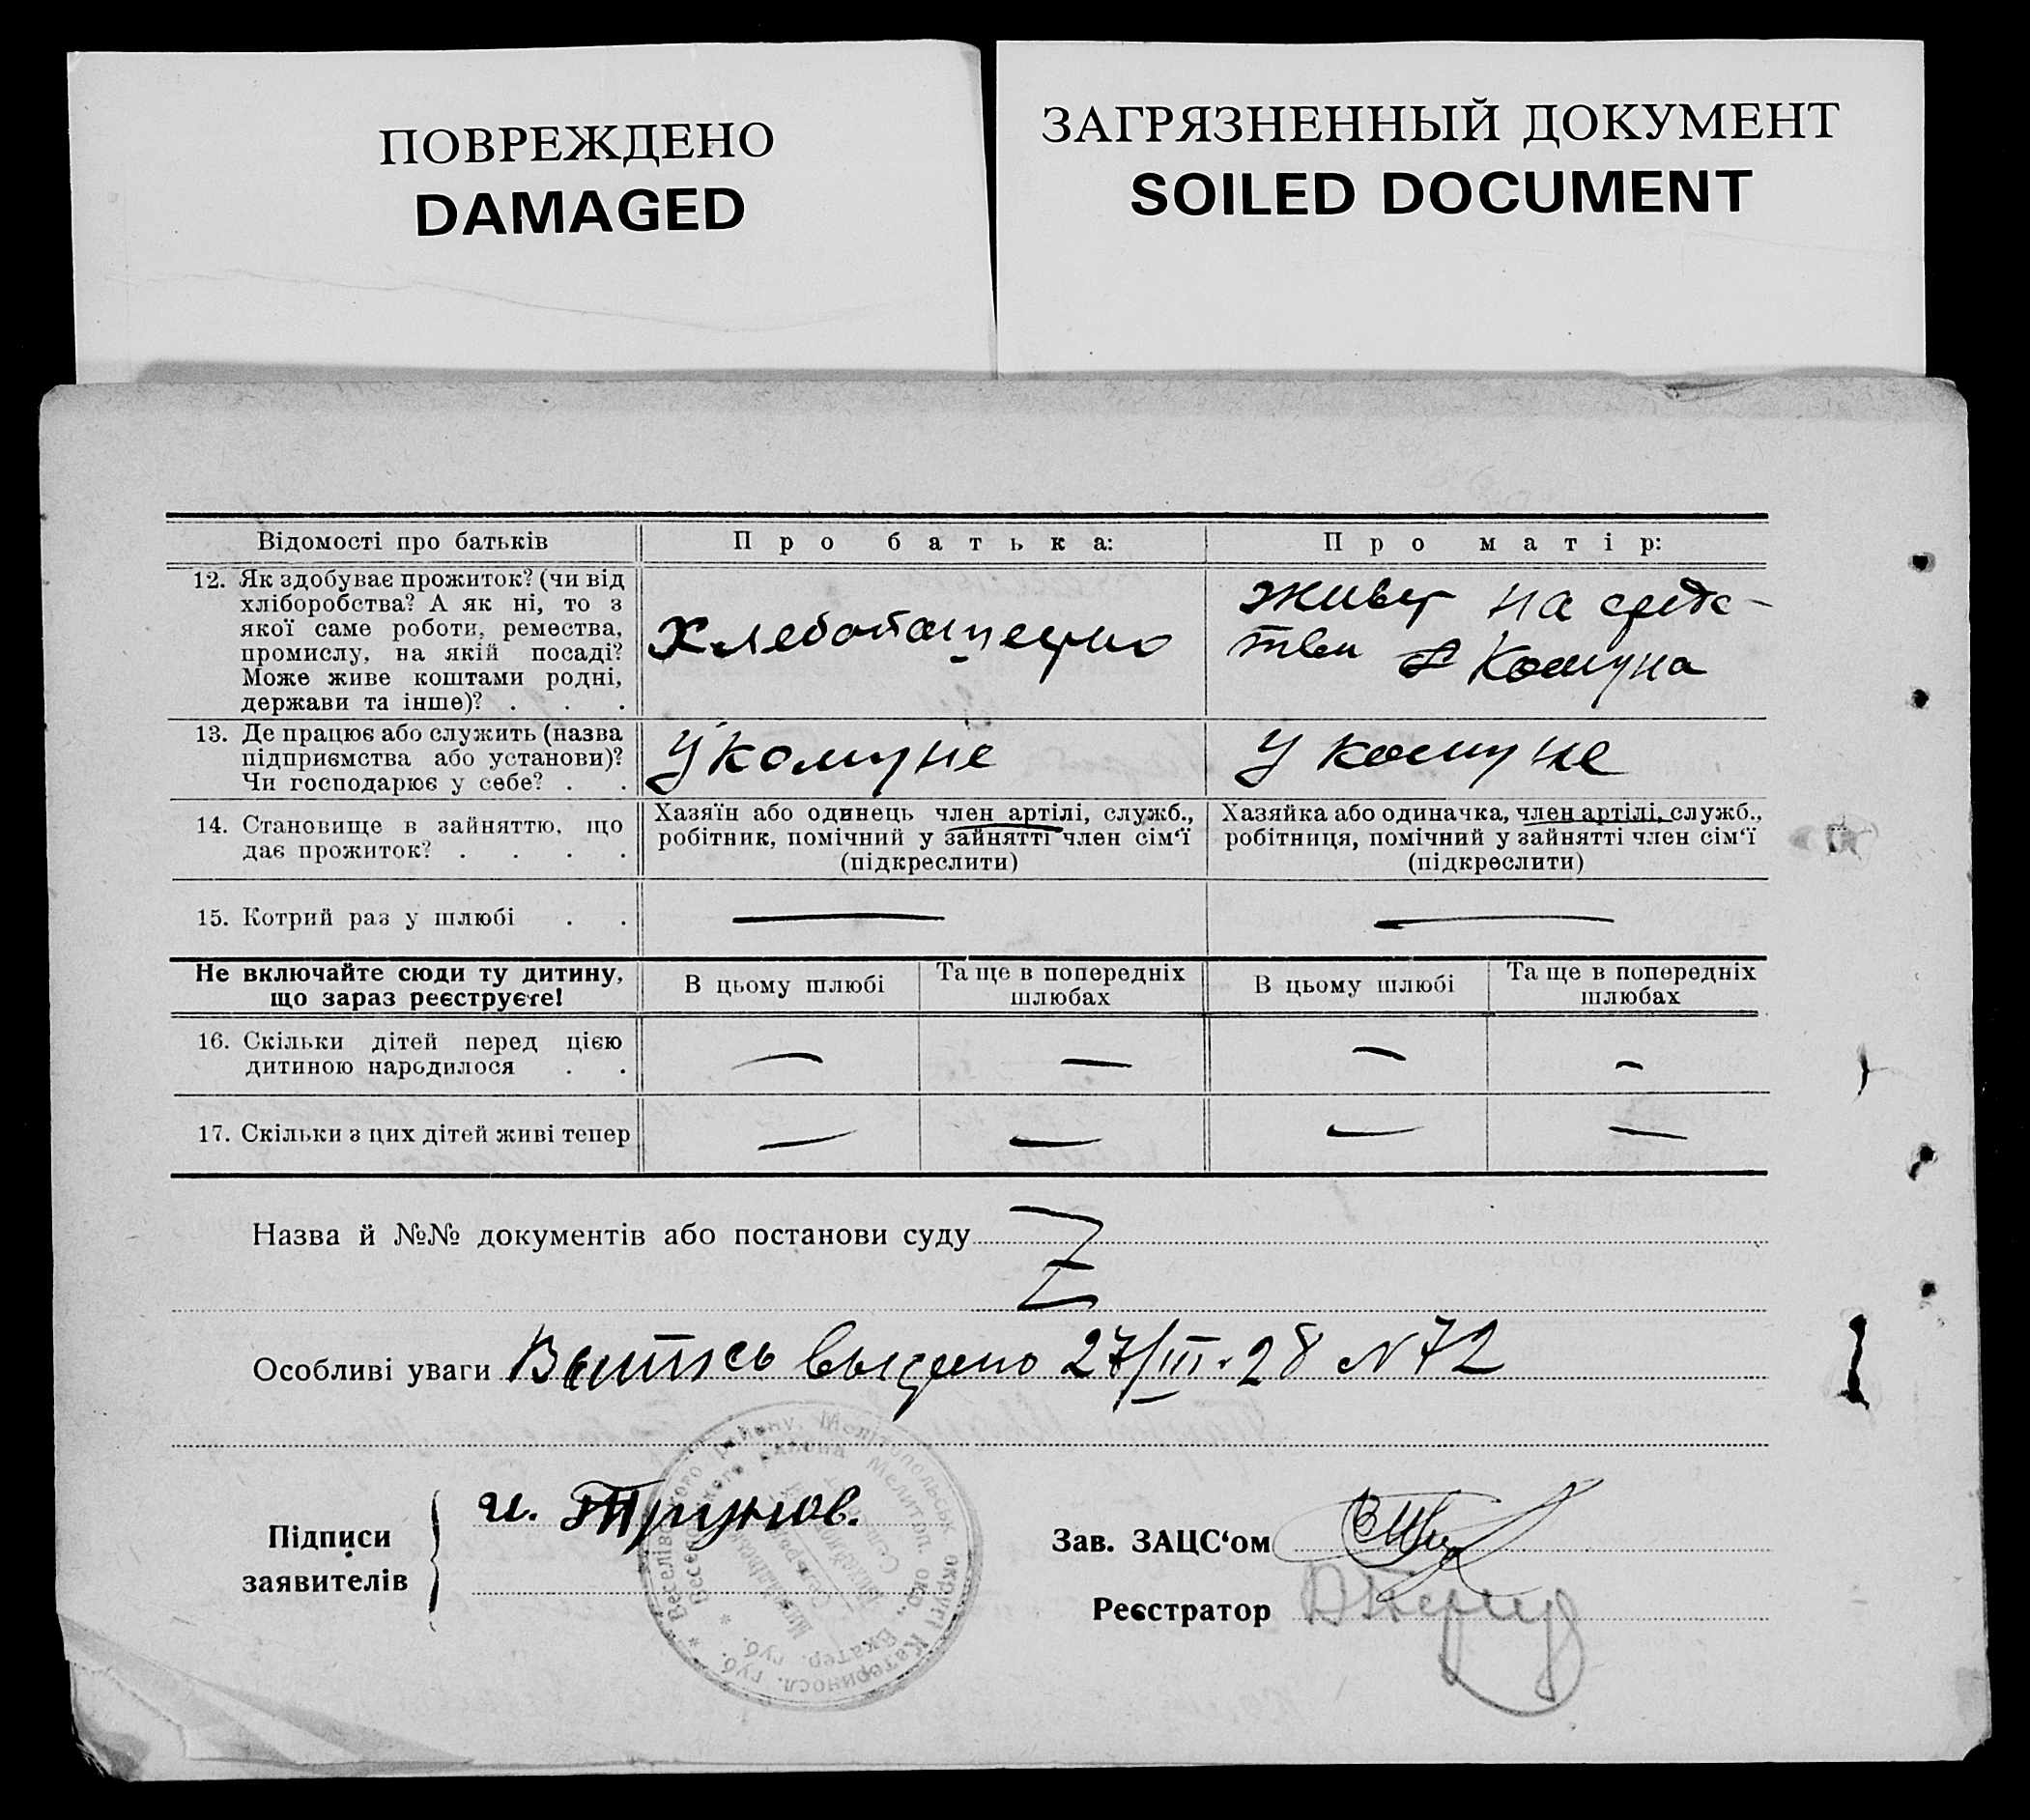 ПОВРЕЖДЕНО
DAMAGED
ЗАГРЯЗНЕННЫЙ ДОКУМЕНТ
SOILED DOCUMENT
Відомості про батьків
Про батька:
Про матір:
12. Як здобуває прожиток? (чи від
хліборобства? А як ні, то з
якої саме роботи, ремества,
промислу, на якій посаді?
Може живе коштами родні,
держави та інше)? . . .
живет на средс-
тви Комуна
13. Де працює або служить (назва
підприємства або установи)?
Чи господарює у себе? . .
У комуне
У комуне
14. Становище в зайняттю, що
дає прожиток? . . . .
Хазяїн або одинець член артілі, служб.,
робітник, помічний у зайнятті член сім'ї
(підкреслити)
Хазяйка або одиначка, член артілі, служб.,
робітниця, помічний у зайнятті член сім'ї
(підкреслити)
15. Котрий раз у шлюбі . .
—
—
Не включайте сюди ту дитину,
що зараз реєструєте!
В цьому шлюбі
Та ще в попередніх
шлюбах
В цьому шлюбі
Та ще в попередніх
шлюбах
16. Скільки дітей перед цією
дитиною народилося . .
— — — —
17. Скільки з цих дітей живі тепер
— — — —
Назва й №№ документів або постанови суду
Z
Особливі уваги Выпись выдано 27/III-28 N 72
Підписи
заявителів
и. Трунов.
Зав. ЗАЦС'ом
Реєстратор
* Веселівського району, Мелітопольськ округи Катеринosл. губ.
Веселовского района Мелитоп. окр., Екатер. губ. *